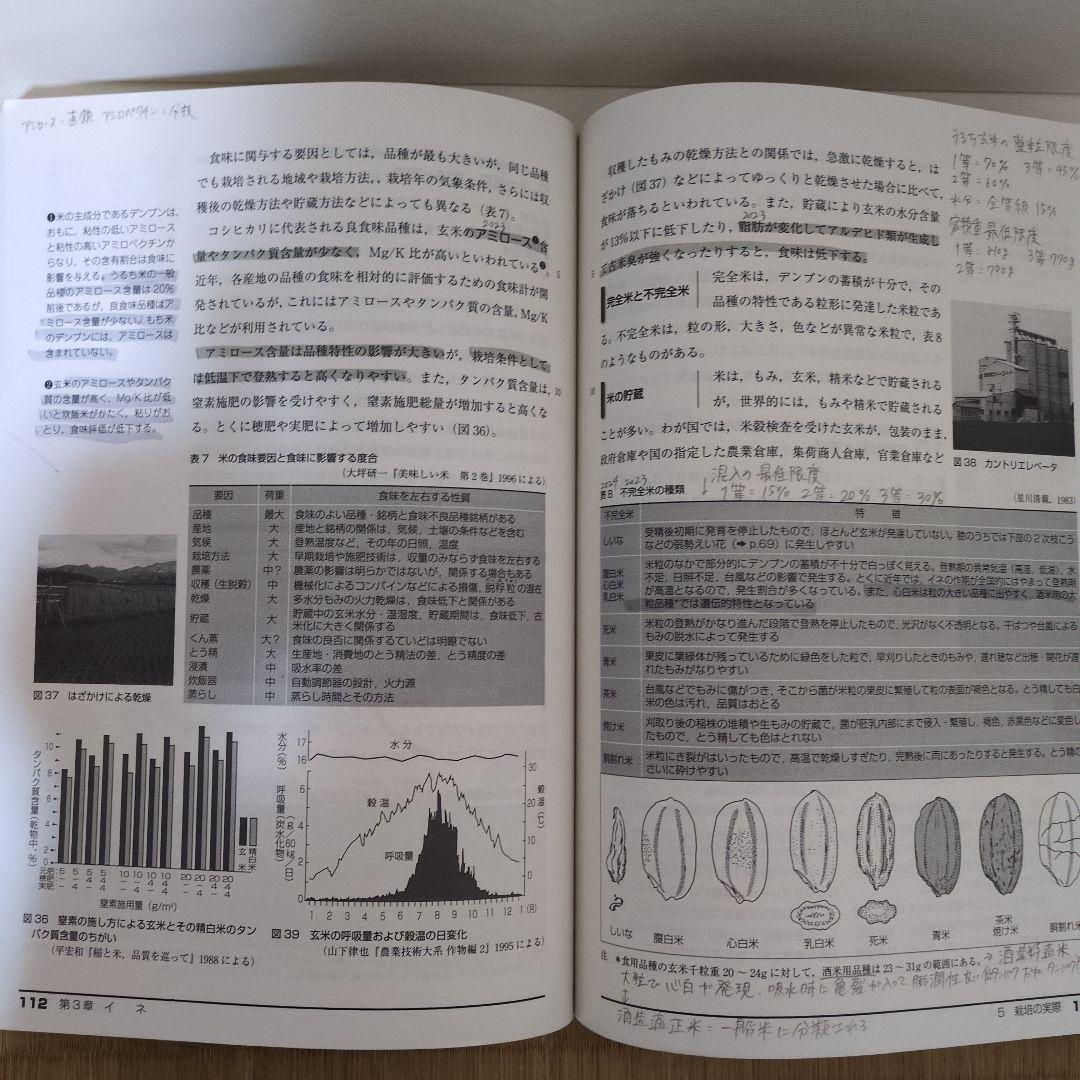 アミロース：直鎖 アミロペクチン：分枝
食味に関与する要因としては，品種が最も大きいが，同じ品種
でも栽培される地域や栽培方法，，栽培年の気象条件，さらには収
穫後の乾燥方法や貯蔵方法などによっても異なる（表7）。
2023
コシヒカリに代表される良食味品種は，玄米のアミロース❶含
量やタンパク質含量が少なく，Mg/K 比が高いといわれている❷。
近年，各産地の品種の食味を相対的に評価するための食味計が開
発されているが，これにはアミロースやタンパク質の含量，Mg/K
比などが利用されている。
アミロース含量は品種特性の影響が大きいが，栽培条件として
は低温下で登熟すると高くなりやすい。また，タンパク質含量は，
窒素施肥の影響を受けやすく，窒素施肥総量が増加すると高くな
る。とくに穂肥や実肥によって増加しやすい（図36）。
5
10
❶米の主成分であるデンプンは，
おもに，粘性の低いアミロース
と粘性の高いアミロペクチンか
らなり，その含有割合は食味に
影響を与える。うるち米の一般
品種のアミロース含量は20％
前後であるが，良食味品種はア
ミロース含量が少ない。もち米
のデンプンには，アミロースは
含まれていない。
❷玄米のアミロースやタンパク
質の含量が高く，Mg/K 比が低
いと炊飯米がかたく，粘りがお
とり，食味評価が低下する。
表7 米の食味要因と食味に影響する度合
（大坪研一『美味しい米 第2巻』1996による）
要因 荷重 食味を左右する性質
品種 最大 食味のよい品種・銘柄と食味不良品種銘柄がある
産地 大 産地と銘柄の関係は，気候，土壌の条件などを含む
気候 大 登熟温度など，その年の日照，温度
栽培方法 大 早期栽培や施肥技術は，収量のみならず食味を左右する
農薬 中？ 農薬の影響は明らかではないが，関係する場合もある
収穫（生脱穀） 中 機械化によるコンバインなどによる損傷，脱ぷ粒の混在
乾燥 大 多水分もみの火力乾燥は，食味低下と関係がある
貯蔵 大 貯蔵中の玄米水分・温湿度，貯蔵期間は，食味低下，古
米化に大きく関係する
くん蒸 大？ 食味の良否に関係するていどは明瞭でない
とう精 大 生産地・消費地のとう精法の差，とう精度の差
浸漬 中 吸水率の差
炊飯器 中 自動調節器の設計，火力源
蒸らし 中 蒸らし時間とその方法
図37 はざかけによる乾燥
タンパク質含量（乾物中，％）
10
8
6
4
2
0
玄米 精白米
元肥 5 5 5 5 10 10 10 10 20 20 20 20
穂肥 － － 4 4 － － 4 4 － － 4 4
実肥 － 4 － 4 － 4 － 4 － 4 － 4
窒素施用量（g/m²）
図36 窒素の施し方による玄米とその精白米のタン
パク質含量のちがい
（平宏和『稲と米，品質を巡って』1988による）
水分（％）
17
16
水分
呼吸量（炭水化物）（g/60kg/日）
6
4
2
0
穀温
呼吸量
穀温（℃）
30
20
10
0
1 2 3 4 5 6 7 8 9 10 11 12 1（月）
図39 玄米の呼吸量および穀温の日変化
（山下律也『農業技術大系 作物編2』1995による）
112 第3章 イ ネ
収穫したもみの乾燥方法との関係では，急激に乾燥すると，は
ざかけ（図37）などによってゆっくりと乾燥させた場合に比べて，
食味が落ちるといわれている。また，貯蔵により玄米の水分含量
2023
が13％以下に低下したり，脂肪が変化してアルデヒド類が生成し
て古米臭が強くなったりすると，食味は低下する。
完全米と不完全米
完全米は，デンプンの蓄積が十分で，その
品種の特性である粒形に発達した米粒であ
る。不完全米は，粒の形，大きさ，色などが異常な米粒で，表8
のようなものがある。
米の貯蔵
米は，もみ，玄米，精米などで貯蔵される
が，世界的には，もみや精米で貯蔵される
ことが多い。わが国では，米穀検査を受けた玄米が，包装のまま，
政府倉庫や国の指定した農業倉庫，集荷商人倉庫，官業倉庫など
5
10
うるち玄米の整粒限度
1等＝70％ 3等＝45％
2等＝60％
水分＝全等級15％
容積重最低限度
1等＝810g 3等770g
2等＝790g
図38 カントリエレベータ
（星川清親，1983）
2024 2023
混入の最低限度
1等＝15％ 2等＝20％ 3等＝30％
表8 不完全米の種類
不完全米 特 徴
しいな 受精後初期に発育を停止したもので，ほとんど玄米が発達していない。穂のうちでは下部の2次枝こう
などの弱勢えい花（➡p.69）に発生しやすい
腹白米
心白米
乳白米
米粒のなかで部分的にデンプンの蓄積が不十分で白っぽく見える。登熟期の異常気温（高温，低温），水
不足，日照不足，台風などの影響で発生する。とくに近年では，イネの作期が全国的にはやまって登熟期
が高温となるので，発生割合が多くなっている。また，心白米は粒の大きい品種に出やすく，酒米用の大
粒品種*では遺伝的特性となっている
死米 米粒の登熟がかなり進んだ段階で登熟を停止したもので，光沢がなく不透明となる。干ばつや台風による
もみの脱水によって発生する
青米 果皮に葉緑体が残っているために緑色をした粒で，早刈りしたときのもみや，遅れ穂など出穂・開花が遅
れたもみがなりやすい
茶米 台風などでもみに傷がつき，そこから菌が米粒の果皮に繁殖して粒の表面が褐色となる。とう精しても白
米の色は汚れ，品質はおとる
焼け米 刈取り後の稲株の堆積や生もみの貯蔵で，菌が胚乳内部にまで侵入・繁殖し，褐色，赤黒色などに変色し
たもので，とう精しても色はとれない
胴割れ米 米粒にき裂がはいったもので，高温で乾燥しすぎたり，完熟後に雨にあったりすると発生する。とう精の
さいに砕けやすい
しいな 腹白米 心白米 乳白米 死米 青米 茶米 焼け米 胴割れ米
注 *食用品種の玄米千粒重20～24gに対して，酒米用品種は23～31gの範囲にある。→酒造好適米
大粒で心白が発現，吸水時に亀裂が入って膨潤性
酒造適正米＝一般米に分類される
5 栽培の実際